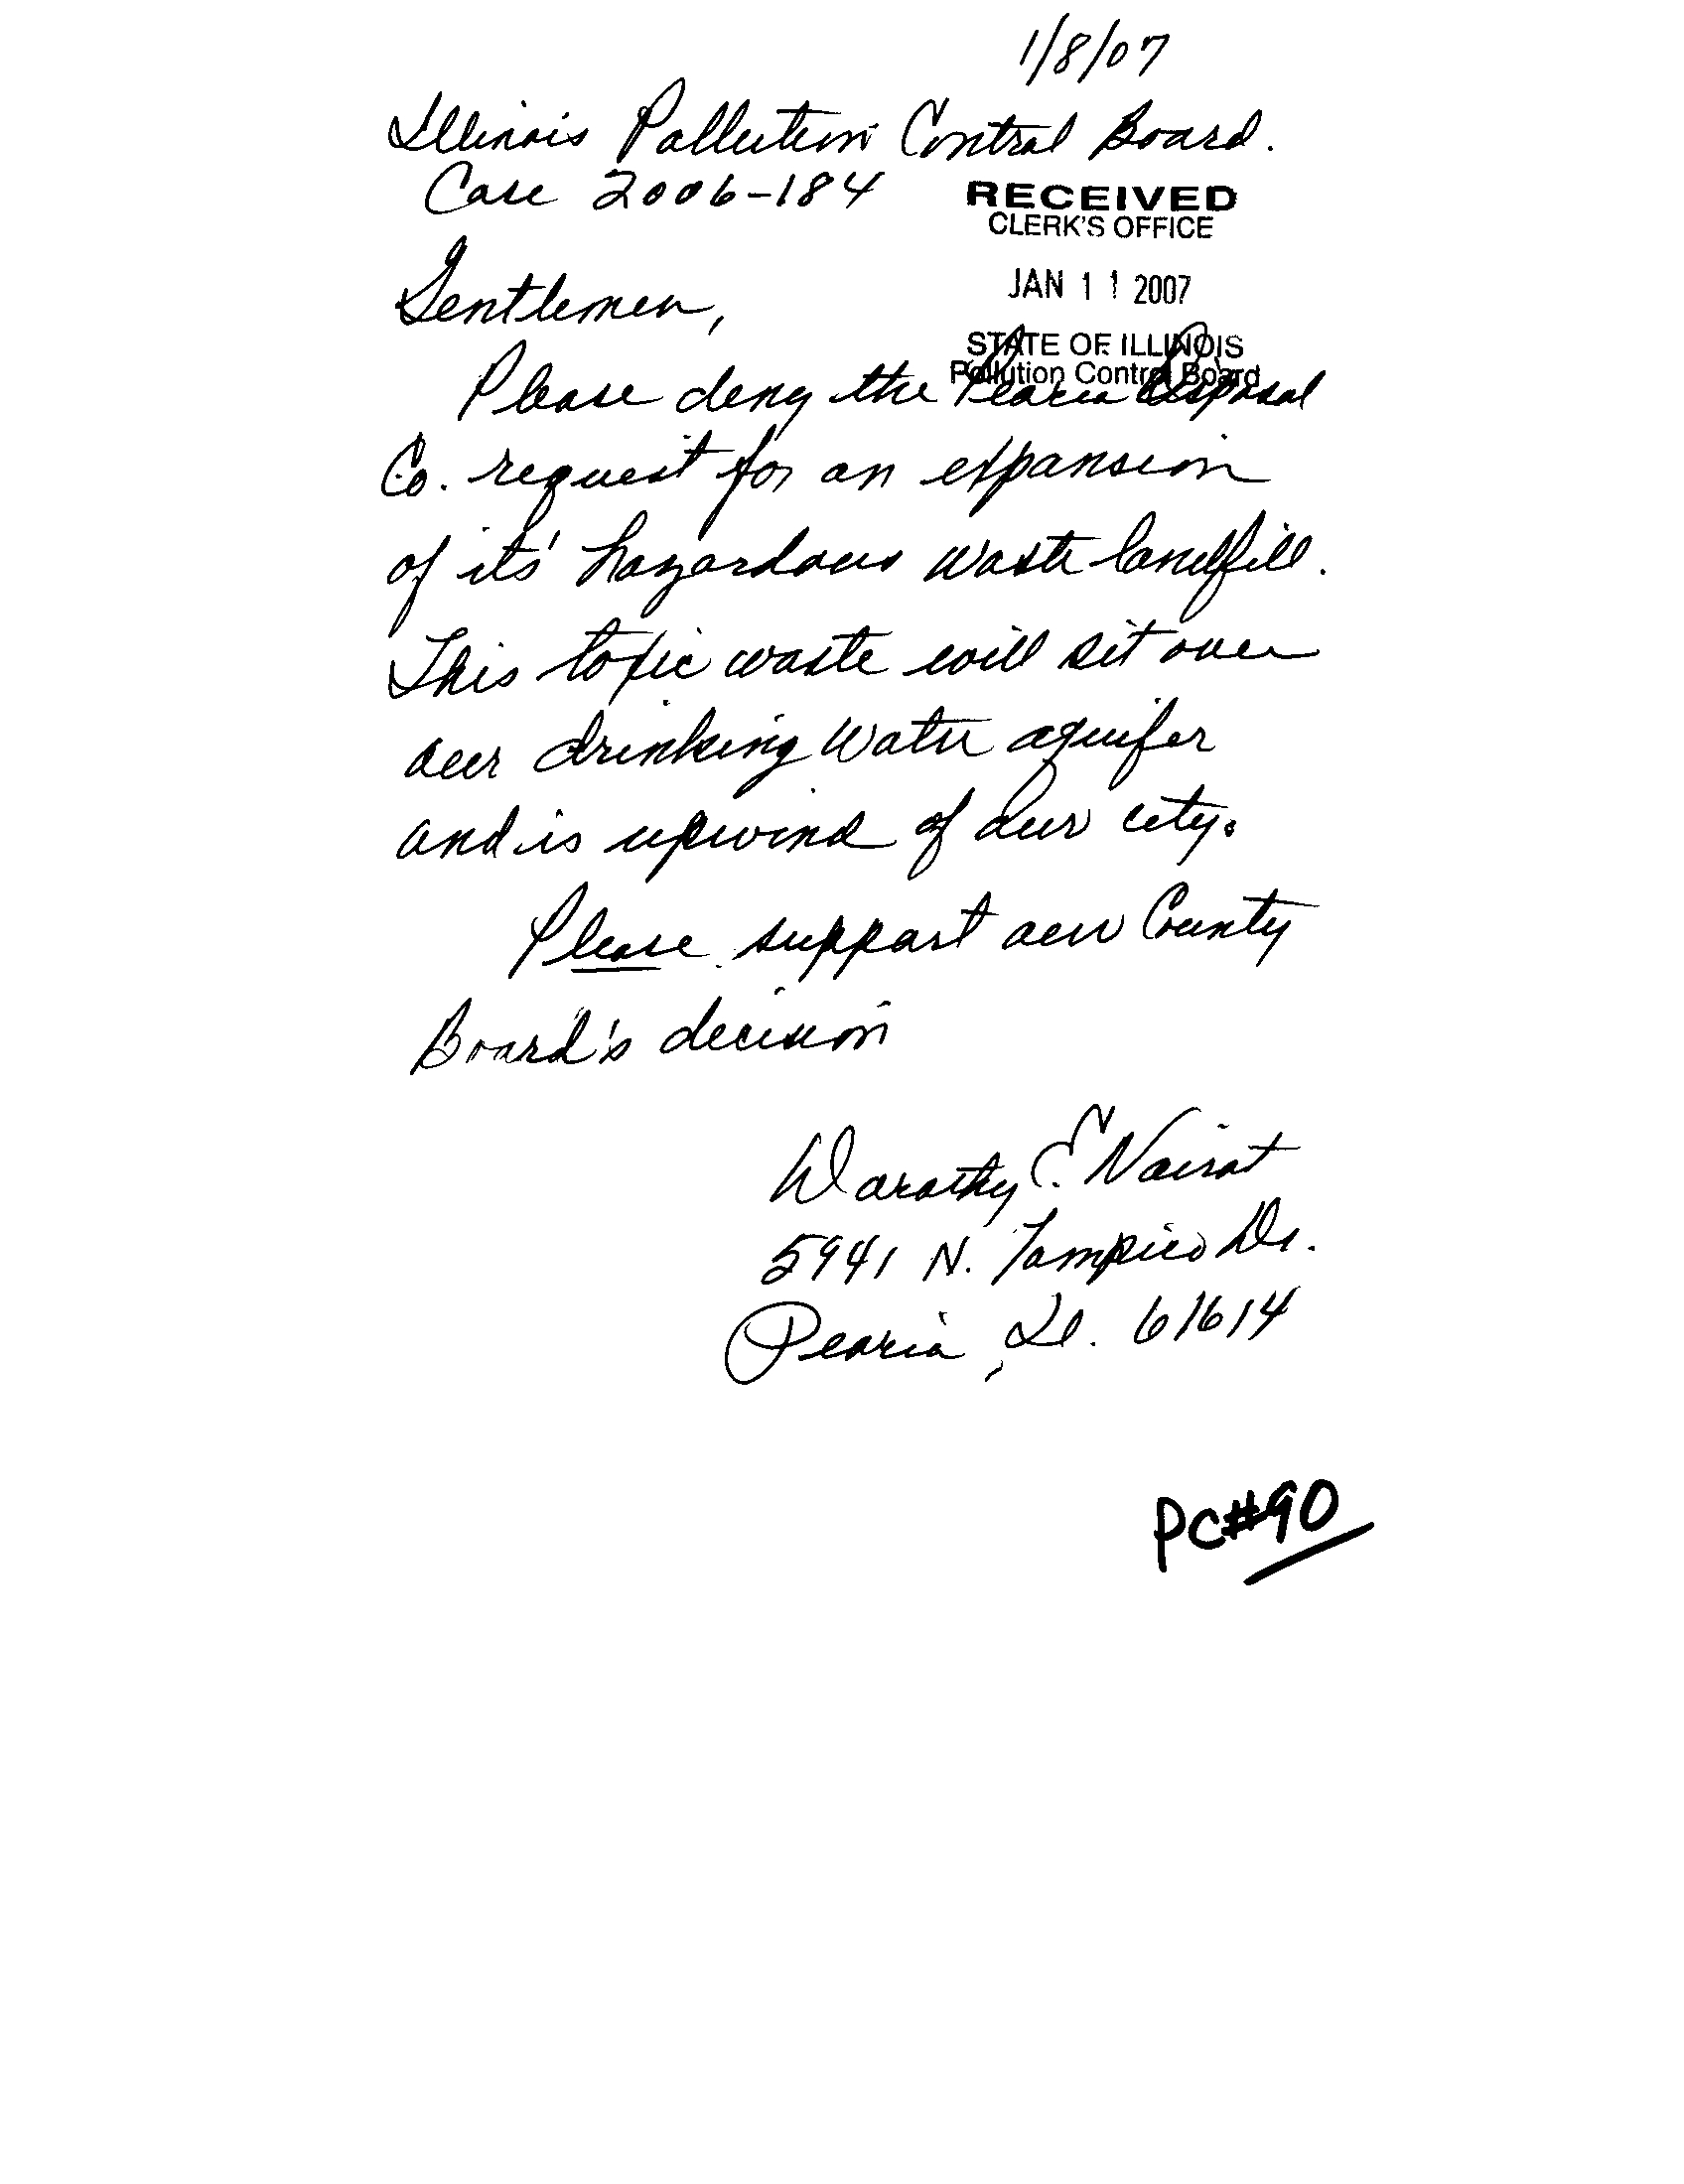 1/8/07
Illinois Pollution Control Board.
Case 2006-184
RECEIVED
CLERK'S OFFICE
JAN 11 2007
STATE OF ILLINOIS
Pollution Control Board
Gentlemen,
Please deny the Peoria Disposal
Co. request for an expansion
of its' hazardous waste landfill.
This toxic waste will sit over
our drinking water aquifer
and is upwind of our city.
Please support our County
Board's decision
Dorothy E.
5941 N. Tampico Dr.
Peoria, Il. 61614
PC#90